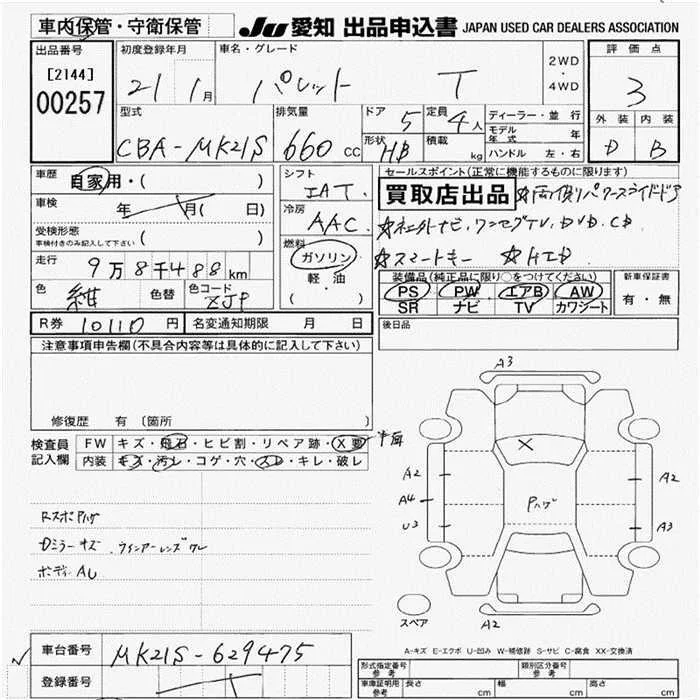 車内保管・守衛保管
JU 愛知 出品申込書 JAPAN USED CAR DEALERS ASSOCIATION
出品番号
[2144]
00257
初度登録年月
21 1月
車名・グレード
パレット T
2WD
・
4WD
評価点
3
外装 内装
D B
型式
CBA-MK21S
排気量
660cc
ドア
5
定員
4人
形状
HB
積載
kg
ディーラー・並行
モデル年式 年
ハンドル 左・右
車歴
自家用・( )
車検
年 月( 日)
受検形態
車検付きのみ記入して下さい ( )
走行
9万8千488km
色
紺
色替
色コード
ZJP
シフト
IAT
冷房
AAC
燃料
ガソリン
・
軽油
( )
セールスポイント(正常に機能するものに限ります)
買取店出品 ☆両側パワースライドドア
☆社外ナビ、ワンセグTV、DVD、CD
☆スマートキー ☆HID
装備品(純正品に限り○をつけてください)
PS PW エアB AW
SR ナビ TV カワシート
新車保証書
有・無
R券 10110円 名変通知期限 月 日
後日品
注意事項申告欄(不具合内容等は具体的に記入して下さい)
修復歴 有〔箇所 〕
検査員
記入欄
FW キズ・飛石・ヒビ割・リペア跡・X要
内装 キズ・汚レ・コゲ・穴・スレ・キレ・破レ
RスポPハゲ
Dミラーキズ ウインカーレンズワレ
ボディAU
A3
A2
A4
U3
Pハゲ
A2
A3
A2
スペア
A-キズ E-エクボ U-凹み W-補修跡 S-サビ C-腐食 XX-交換済
車台番号 MK21S-629475
登録番号
型式指定番号
参考
類別区分番号
参考
車庫証明用
参考
長さ cm 幅 cm 高さ cm